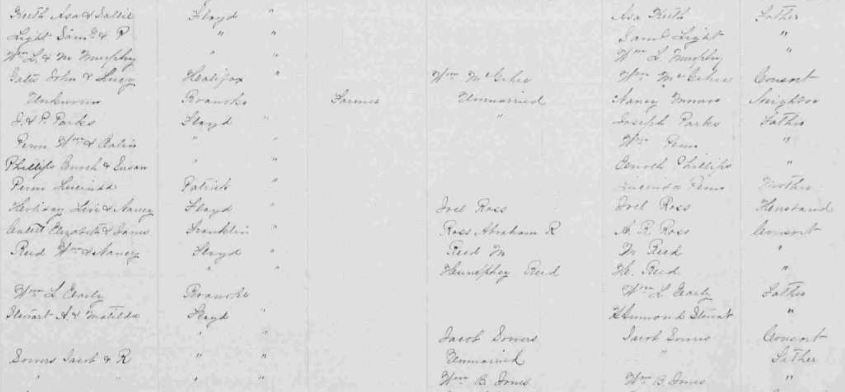 Keith Asa & Sallie Floyd " Asa Keith Father
Light Saml & P " " Saml Light "
Wm L. & M Murphy " " Wm L. Murphy "
John & Lucy Healifax " Wm McGehee Wm McGehee Consort
Unknown Roanoke Farmer Unmarried Nancy Neighbor
J. & P. Parks Floyd " " Joseph Parks Father
Penn Wm & " " Wm Penn "
Phillips Enoch & Susan " " Enoch Phillips "
Penn Lucinda Patrick " Lucinda Penn Mother
Levi & Nancy Floyd " Joel Ross Joel Ross Husband
Elizabeth & James Franklin " Ross Abraham R A. R. Ross Consort
Reed Wm & Nancy Floyd " Reed M M Reed "
" " Humphrey Reed H. Reed "
Wm L. Early Roanoke Wm L Early Father
Stewart A. & Matilda Floyd " Hammond Stewart "
" " Jacob Sowers Jacob Sowers Consort
Sowers Jacob & R " " Unmarried " Father
" " " " Wm B Jones Wm B Jones "